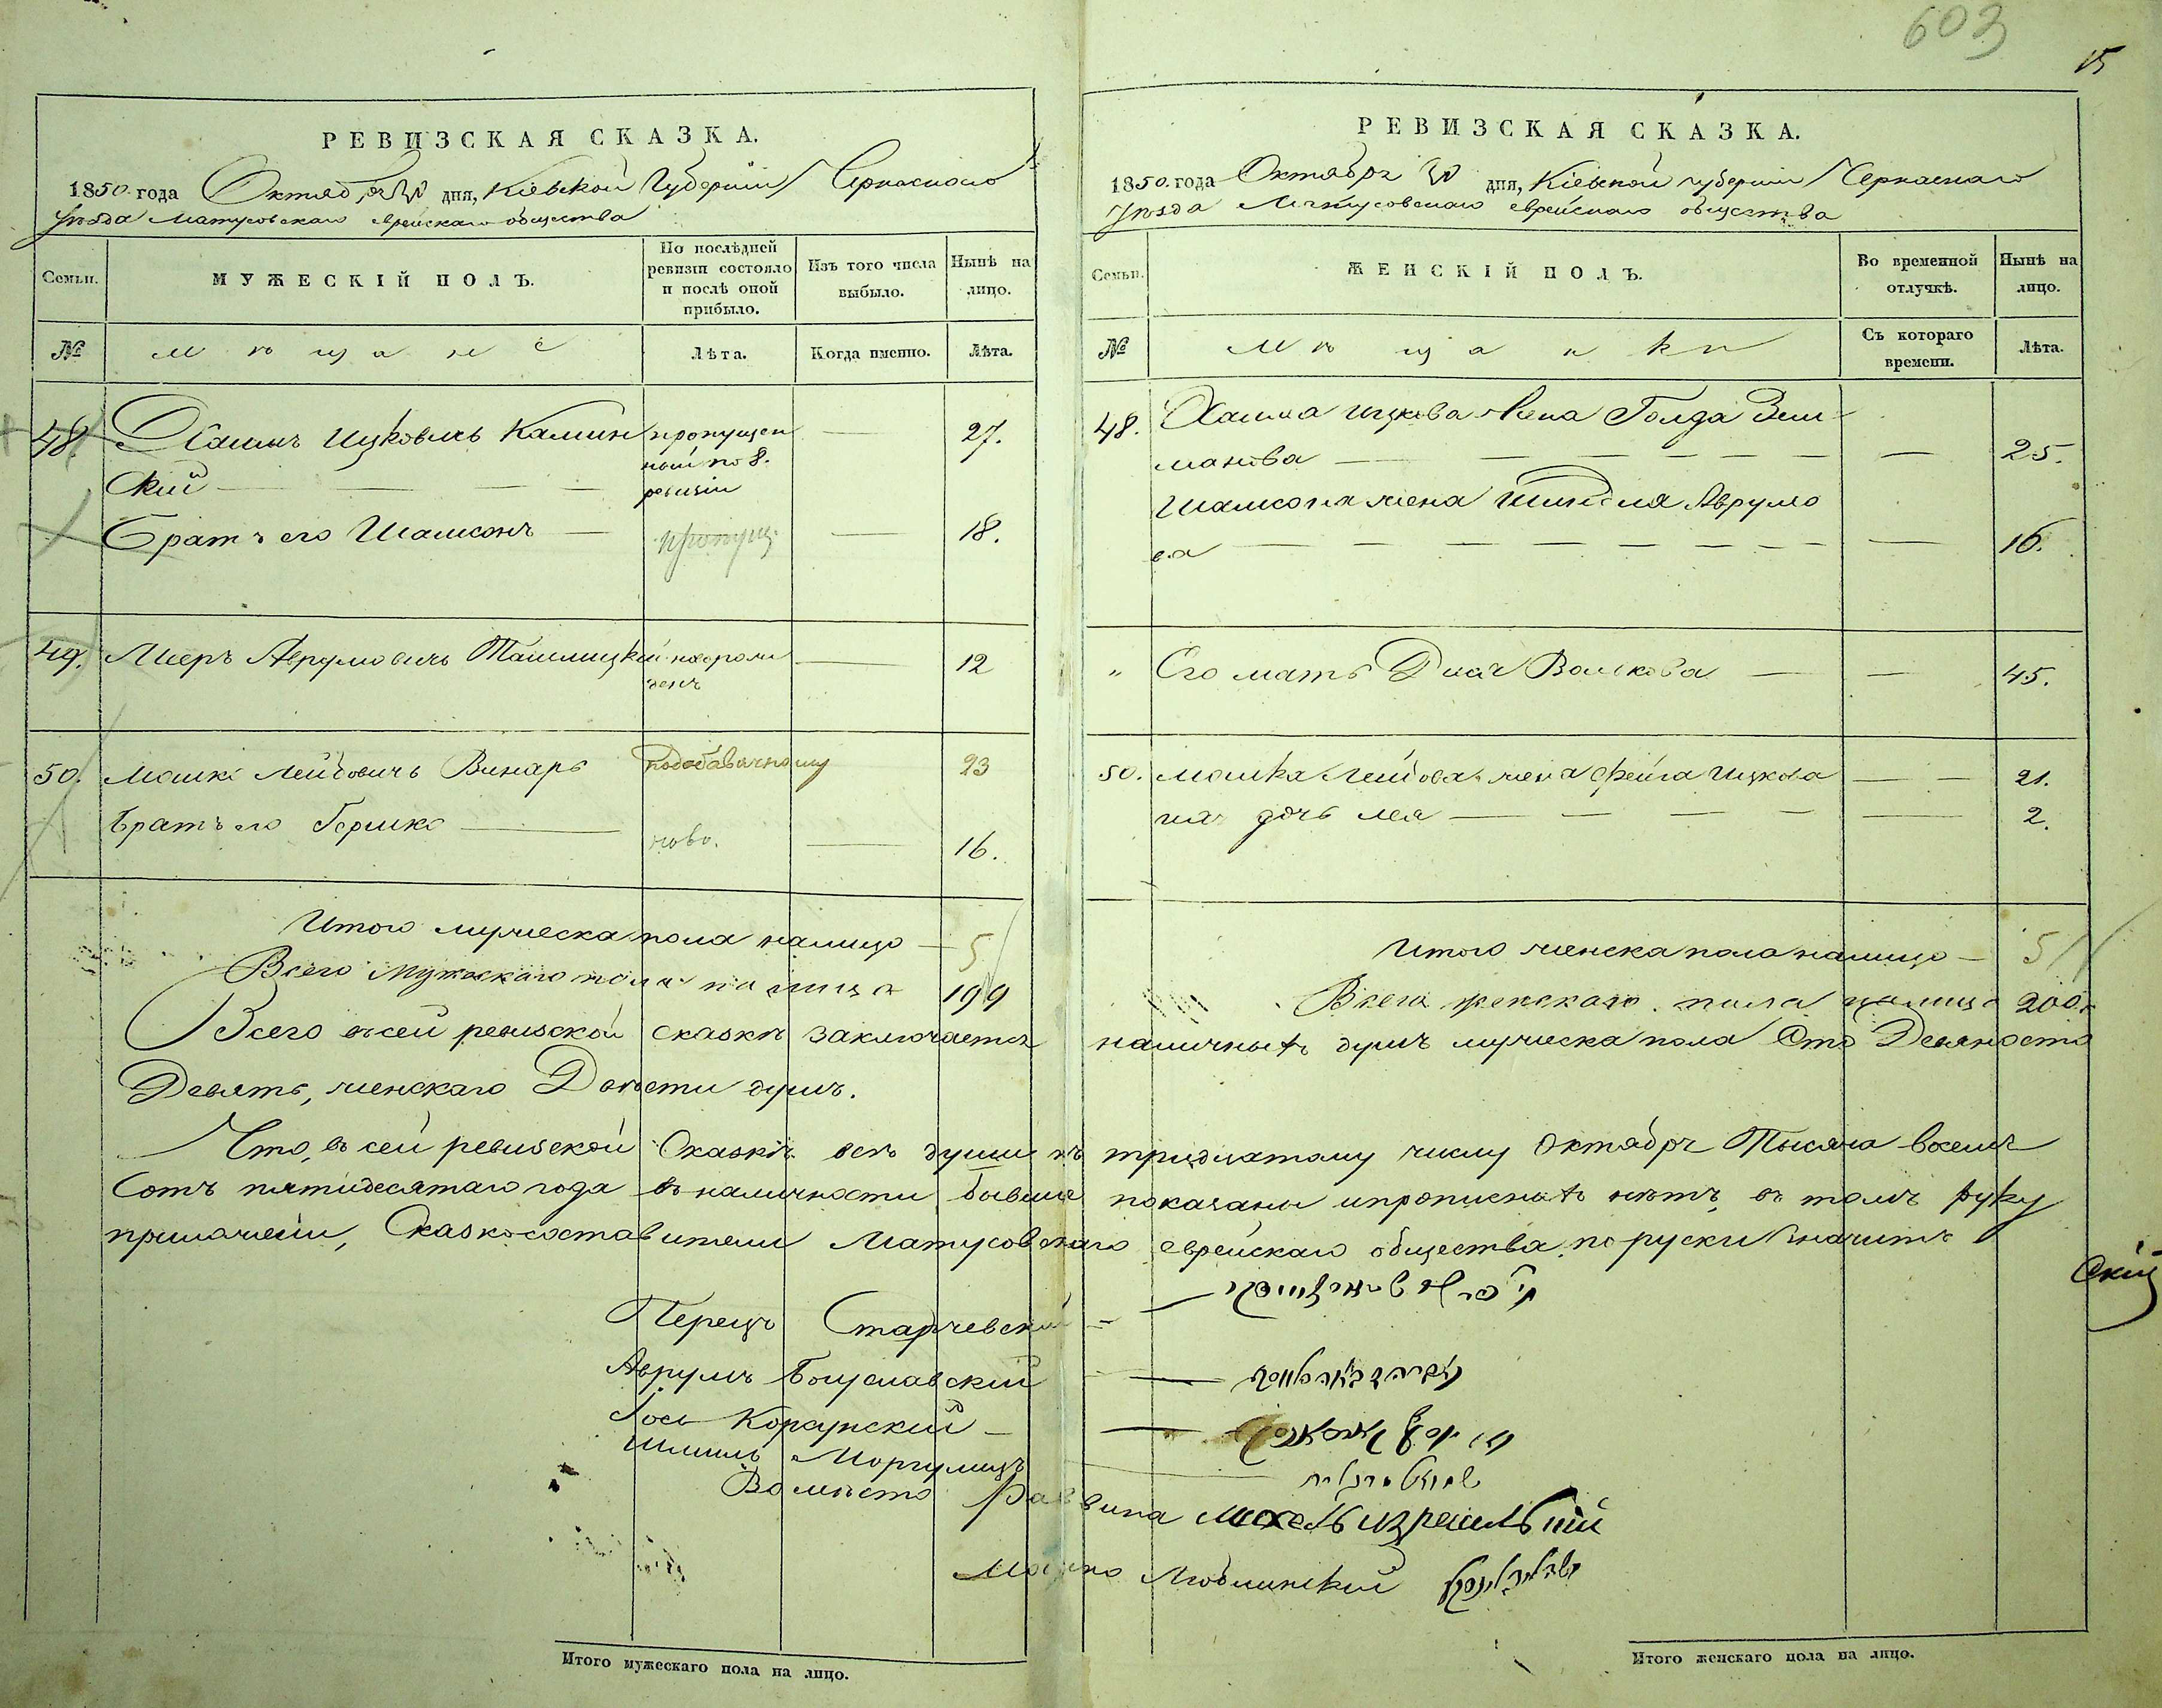 603
15
РЕВИЗСКАЯ СКАЗКА.
1850 года Октяб ря 30 дня, Кіевской Губерніи Черкаскаго
Уѣзда Матусовскаго еврейскаго общества
Семьи.
МУЖЕСКІЙ ПОЛЪ.
По послѣдней ревизіи состояло и послѣ оной прибыло.
Изъ того числа выбыло.
Нынѣ на лицо.
№
Мѣщане
Лѣта.
Когда именно.
Лѣта.
48. Хаимъ Ицковичъ Камин пропущен — 27.
ский — — — ный по 8.
ревизіи
Братъ его Шамсонъ — пропущ. — 18.
49. Меръ Аврумовичъ Ташлицкій новорож — 12
денъ
50. Мошко Лейбовичъ Винаръ подобавочному 23
Братъ его Гершко — ново. — 16.
Итого мужеска пола налицо — 5
Всего мужескаго пола на лицо 199
РЕВИЗСКАЯ СКАЗКА.
1850. года Октября 30 дня, Кіевской губерніи Черкаскаго
Уѣзда Матусовскаго еврейскаго общества
Семьи.
ЖЕНСКІЙ ПОЛЪ.
Во временной отлучкѣ.
Нынѣ на лицо.
№
Мѣщанки
Съ котораго времени.
Лѣта.
48. Хаима Ицкова жена Голда Зель
манова — — — — — — — 25.
Шамсона жена Шиндля Аврумо
ва — — — — — — — — 16.
" Его мать Волькова — — 45.
50. Мошка Лейбова жена Фейга Ицкова — — 21.
их дочь Лея — — — — — 2.
Итого женска пола налицо — 5
Всего женскаго пола налицо 200.
Всего въ сей ревизской сказкѣ заключается наличныхъ душъ мужеска пола Сто Девяносто
Девять, женскаго Двѣсти душъ.
Что, въ сей ревизской Сказкѣ всѣ души къ тридцатому числу Октября Тысяча восемь
Сотъ пятидесятаго года въ наличности бывшіе показаны и прописныхъ нѣтъ, въ томъ руку
приложили, Сказкосоставители Матусовскаго еврейскаго общества. по руски значитъ
Перецъ Старчевский —
Аврумъ Богуславский
Іось Корсунский —
Шмиль Моргулицъ
Вомѣсто Раввина
Мошко Люблинский
ский
Итого мужескаго пола на лицо.
Итого женскаго пола на лицо.